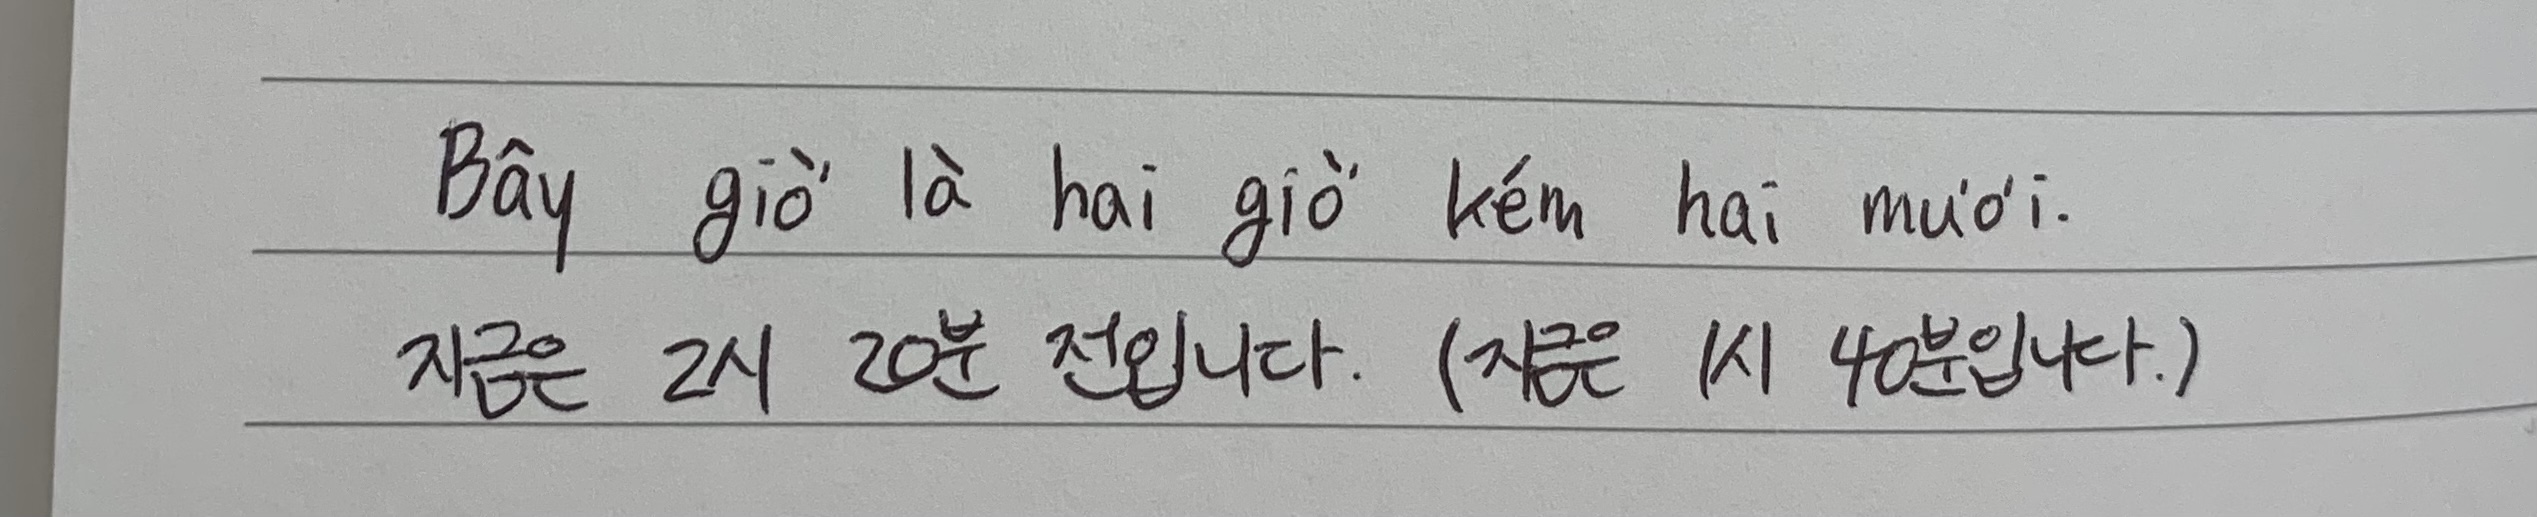 Bây giờ là hai giờ kém hai mươi.
지금은 2시 20분 전입니다. (지금은 1시 40분입니다.)